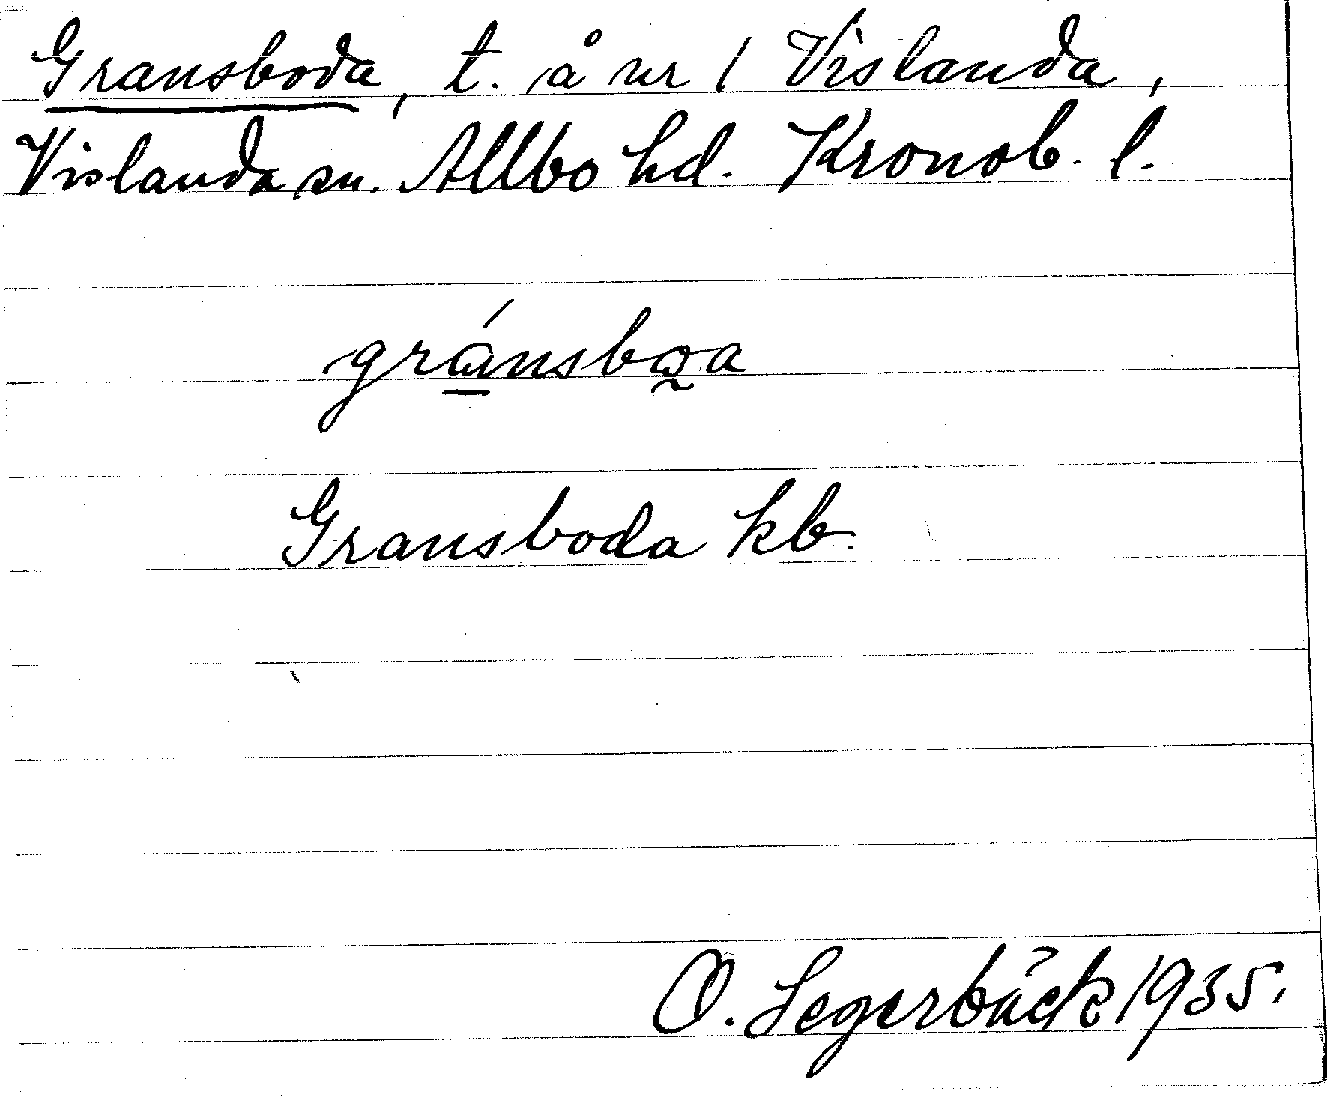 Gransboda, t. å nr 1 Vislanda,
Vislanda sn. Allbo hd. Kronob. l.
gránsboa
Gransboda kb.
O. Segerbäck 1935.